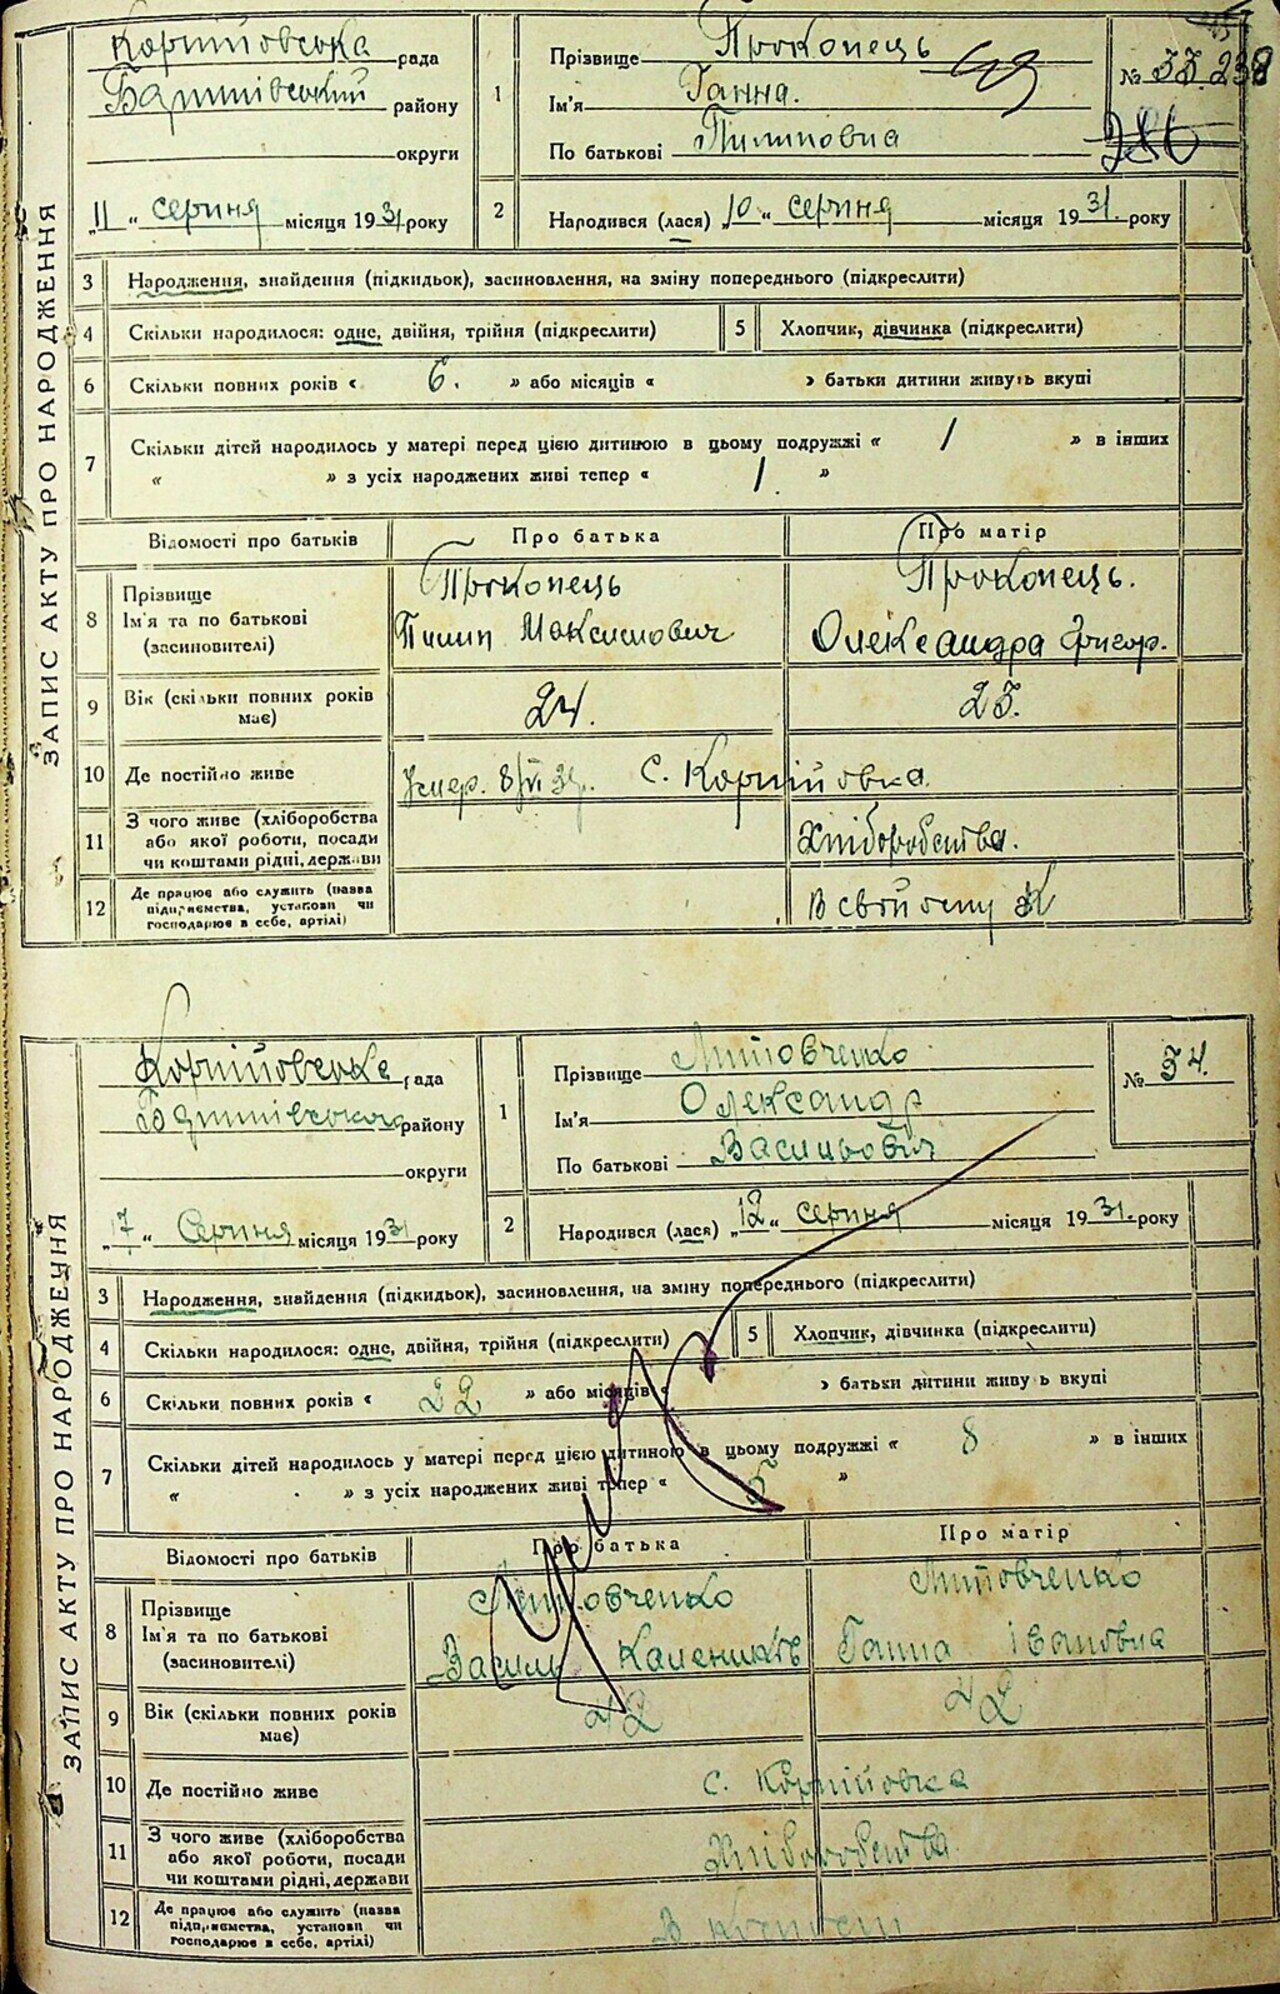 ЗАПИС АКТУ ПРО НАРОДЖЕННЯ
Корніїовська рада
Баришівський району
округи
„11“ серпня місяця 1931 року
1
Прізвище Прокопець
Ім'я Ганна.
По батькові Пилиповна
№ 53. 238
2 Народився (лася) „10“ серпня місяця 1931. року
3 Народження, знайдення (підкидьок), засиновлення, на зміну попереднього (підкреслити)
4 Скільки народилося: одне, двійня, трійня (підкреслити) 5 Хлопчик, дівчинка (підкреслити)
6 Скільки повних років « 6. » або місяців « » батьки дитини живуть вкупі
7 Скільки дітей народилось у матері перед цією дитиною в цьому подружжі « 1 » в інших
« » з усіх народжених живі тепер « 1. »
Відомості про батьків Про батька Про матір
8 Прізвище Прокопець Прокопець.
Ім'я та по батькові Пилип Максимович Олександра Григор.
(засиновителі)
9 Вік (скільки повних років має) 24. 25.
10 Де постійно живе Умер. 8/VI 31р. с. Корніїовка.
11 З чого живе (хліборобства
або якої роботи, посади Хліборобства.
чи коштами рідні, держави
12 Де працює або служить (назва
підприємства, установи чи В свойому
господарює в себе, артілі)
ЗАПИС АКТУ ПРО НАРОДЖЕННЯ
Корніїовська рада
Баришівського району
округи
„17“ Серпня місяця 1931 року
1
Прізвище Литовченко
Ім'я Олександр
По батькові Васильович
№ 54.
2 Народився (лася) „12“ серпня місяця 1931. року
3 Народження, знайдення (підкидьок), засиновлення, на зміну попереднього (підкреслити)
4 Скільки народилося: одне, двійня, трійня (підкреслити) 5 Хлопчик, дівчинка (підкреслити)
6 Скільки повних років « 22 » або місяців « » батьки дитини живу ь вкупі
7 Скільки дітей народилось у матері перед цією дитиною в цьому подружжі « 8 » в інших
« » з усіх народжених живі тепер « 5 »
Відомості про батьків Про батька Про матір
8 Прізвище Литовченко Литовченко
Ім'я та по батькові Василь Каленик Ганна Івановна
(засиновителі)
9 Вік (скільки повних років має) 42 42
10 Де постійно живе с. Корніїовка
11 З чого живе (хліборобства
або якої роботи, посади Хліборобства
чи коштами рідні, держави
12 Де працює або служить (назва
підприємства, установи чи В
господарює в себе, артілі)